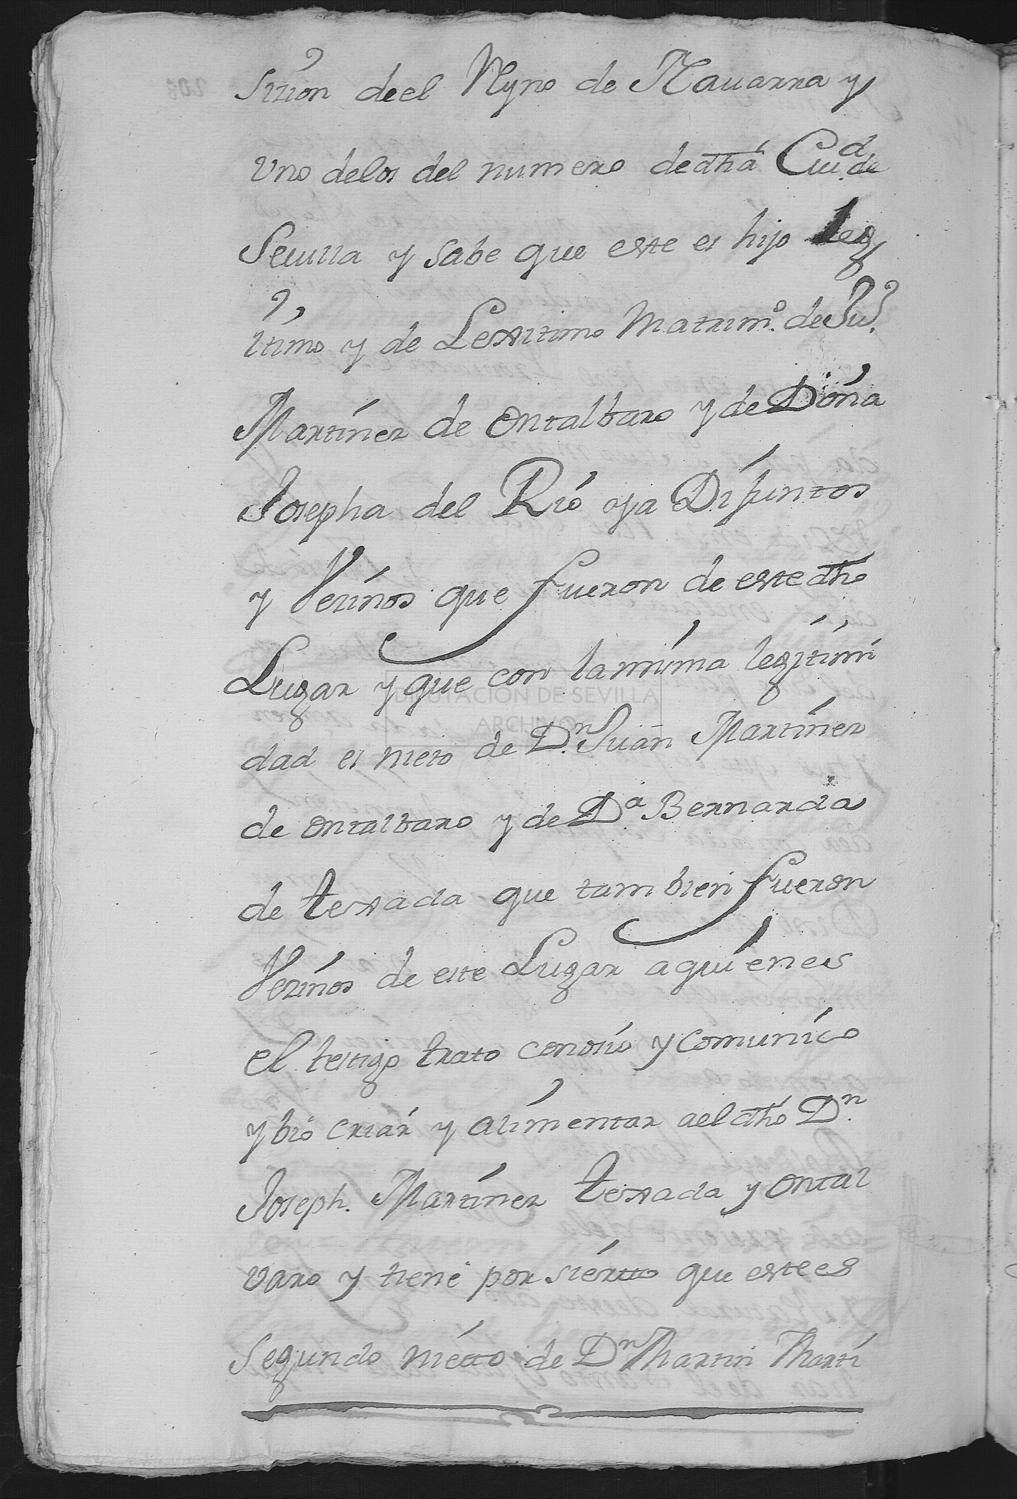 sizion deel Reyno de Nauarra y
Vno delos del numero de dha Ciu.d de
Seuilla y sabe que este es hijo Leg
itimo y de Lexitimo Matrim.o de Ju.o
Martinez de ontalbaro y de Doña
Josepha del Rio ya Difuntos
y Vezinos que fueron de este dho
Lugar y que con la misma legitimi
DIPUTACIÓN DE SEVILLA
ARCHIVO
dad es nieto de D.n Juan Martinez
de ontalbaro y de D.a Bernarda
de texada que tambien fueron
Vezinos de este Lugar aquienes
el testigo trato conosio y comunico
y bio criar y alimentar ael dho D.n
Joseph. Martinez texada y ontal
varo y tiene por siertto que este es
Segundo nietto de D.n Martin Marti